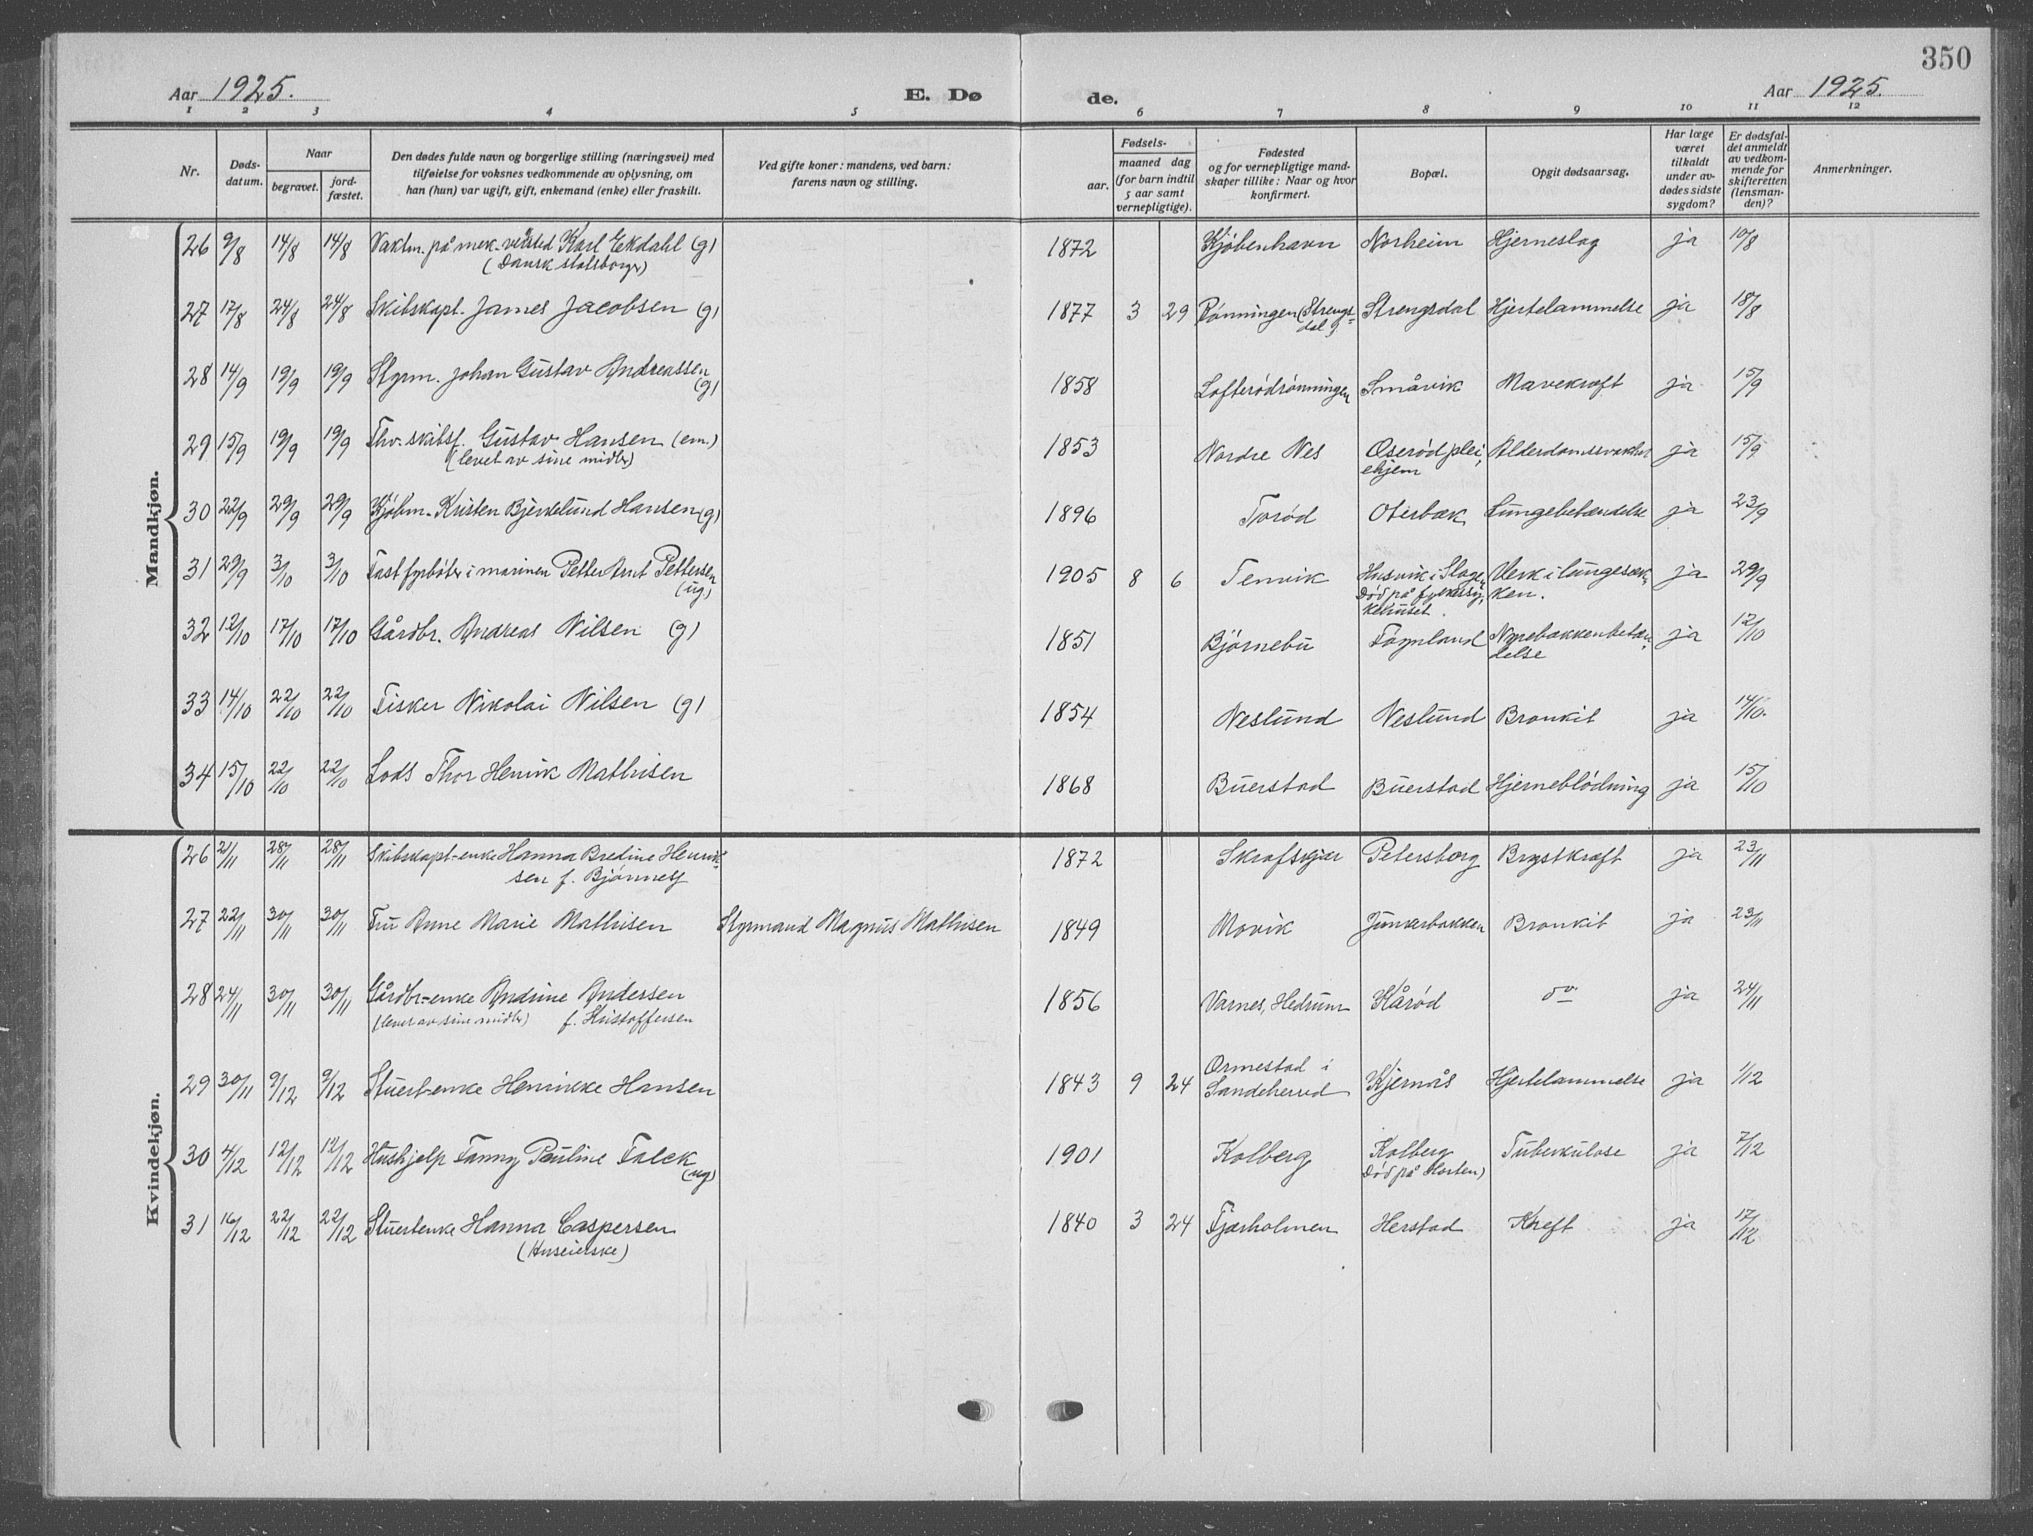 350
Aar 1925. E. Dø de. Aar 1925.
1 2 3 4 5 6 7 8 9 10 11 12
Nr. Døds-datum. Naar begravet. jord-fæstet. Den dødes fulde navn og borgerlige stilling (næringsvei) med tilføielse for voksnes vedkommende av oplysning, om han (hun) var ugift, gift, enkemand (enke) eller fraskilt. Ved gifte koner: mandens, ved barn: farens navn og stilling. Fødsels- aar. maaned dag (for barn indtil 5 aar samt vernepligtige). Fødested og for vernepligtige mand-skaper tillike: Naar og hvor konfirmert. Bopæl. Opgit dødsaarsag. Har læge været tilkaldt under av-dødes sidste sygdom? Er dødsfal-det anmeldt av vedkom-mende for skifteretten (lensman-den)? Anmerkninger.
Mandkjøn.
26 9/8 14/8 14/8 Vaktm. på mek. verksted Karl Ekdahl (g) 1872 Kjøbenhavn Norheim Hjerneslag ja 10/8
(Dansk statsborger)
27 17/8 24/8 24/8 Skibskapt. James Jacobsen (g) 1877 3 29 Rønningen (Strengs-dal) Strengsdal Hjertelammelse ja 18/8
28 14/9 19/9 19/9 Styrm. Johan Gustav Andreassen (g) 1858 Lofterødrønningen Småvik Mavekræft ja 15/9
29 15/9 19/9 19/9 Fhv. skibsf. Gustav Hansen (em.) 1853 Nordre Nes Oserød plei-ehjem ja 15/9
(levet av sine midler)
30 22/9 29/9 29/9 Kjøbm. Kristen Bjerkelund Hansen (g) 1896 Torød Oterbæk Lungebetændelse ja 23/9
31 29/9 3/10 3/10 Fast fyrbøter i marinen Petter Arnt Pettersen (ug) 1905 8 6 Tenvik Husvik i Slagen Død på fylkessy-kehuset. Verk i lungesæk-ken. ja 29/9
32 12/10 17/10 17/10 Gårdbr. Andreas Nilsen (g) 1851 Bjørnebu Føynland Nyrebækkenbetæn-delse ja 12/10
33 14/10 22/10 22/10 Fisker Nikolai Nilsen (g) 1854 Neslund Neslund Bronkit ja 14/10.
34 15/10 22/10 22/10 Lods Thor Henrik Mathisen 1868 Buerstad Buerstad Hjerneblødning ja 15/10
Kvindekjøn.
26 21/11 28/11 28/11 Skibskapt-enke Hanna Bredine Henrik-sen f. Bjønnes 1872 Petersborg Brystkræft ja 23/11
27 22/11 30/11 30/11 Fru Anne Marie Mathisen Styrmand Magnus Mathisen 1849 Movik Junkerbakken Bronkit ja 23/11
28 24/11 30/11 30/11 Gårdbr-enke Andrine Andersen 1856 Varnes, Hedrum Kårød do ja 24/11
(levet av sine midler) f. Kristoffersen
29 30/11 9/12 9/12 Stuert-enke Henrikke Hansen 1843 9 24 Ormestad i Sandeherred Kjernås Hjertelammelse ja 1/12
30 4/12 12/12 12/12 Hushjelp Fanny Pauline Falck (ug) 1901 Kolberg Kolberg Død på Horten) Tuberkulose ja 7/12
31 16/12 22/12 22/12 Stuertenke Hanna Caspersen 1840 3 24 Fjærholmen Herstad Kreft ja 17/12
(Huseierske)